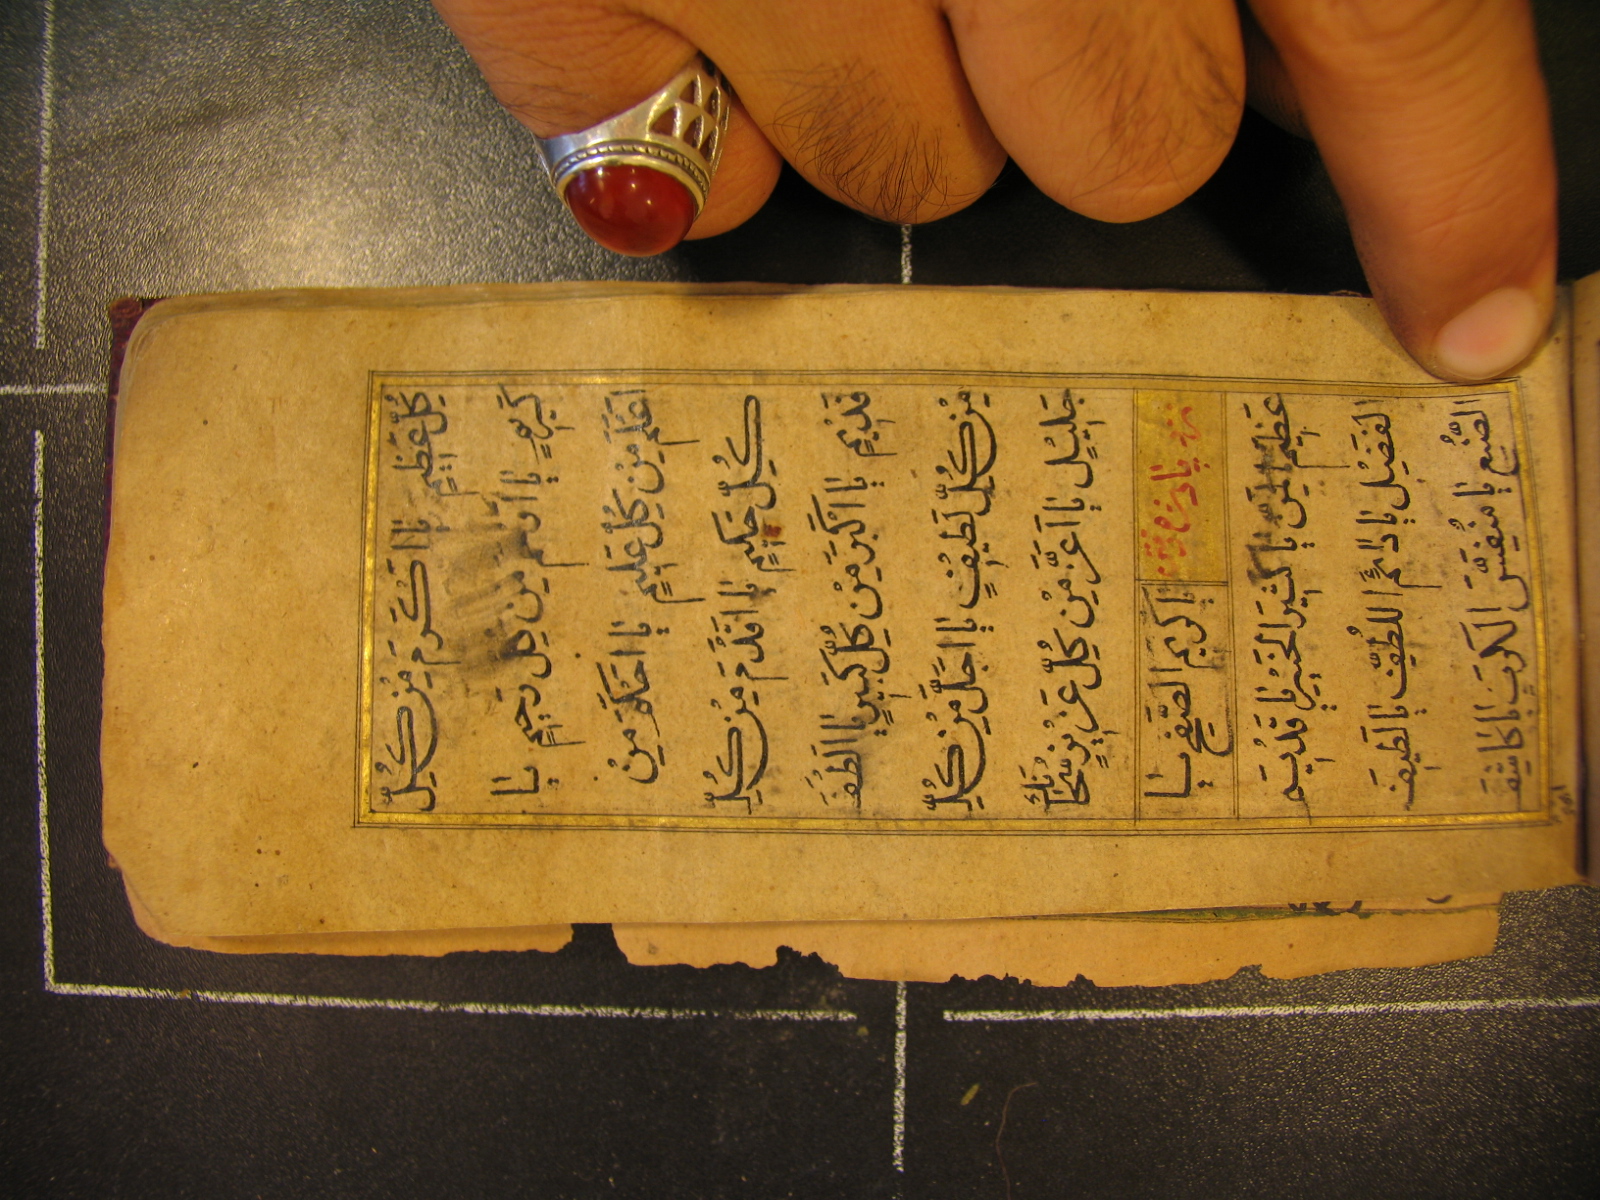 كُلِّ عَظِيمٍ يَا اَكْرَمَ مِنْ كُلِّ
كَرِيمٍ يَا اَرْحَمَ مِنْ كُلِّ رَحِيمٍ يَا
اَعْلَمَ مِنْ كُلِّ عَلِيمٍ يَا اَحْكَمَ مِنْ
كُلِّ حَكِيمٍ يَا اَقْدَمَ مِنْ كُلِّ
قَدِيمٍ يَا اَكْبَرَ مِنْ كُلِّ كَبِيرٍ يَا اَلْطَفَ
مِنْ كُلِّ لَطِيفٍ يَا اَجَلَّ مِنْ كُلِّ
جَلِيلٍ يَا اَعَزَّ مِنْ كُلِّ عَزِيزٍ سُبْحَانَكَ
يَا كَرِيمَ الصَّفْحِ يَا
عَظِيمَ الْمَنِّ يَا كَثِيرَ الْخَيْرِ يَا قَدِيمَ
الْفَضْلِ يَا دَائِمَ اللُّطْفِ يَا لَطِيفَ
الصُّنْعِ يَا مُنَفِّسَ الْكَرْبِ يَا كَاشِفَ